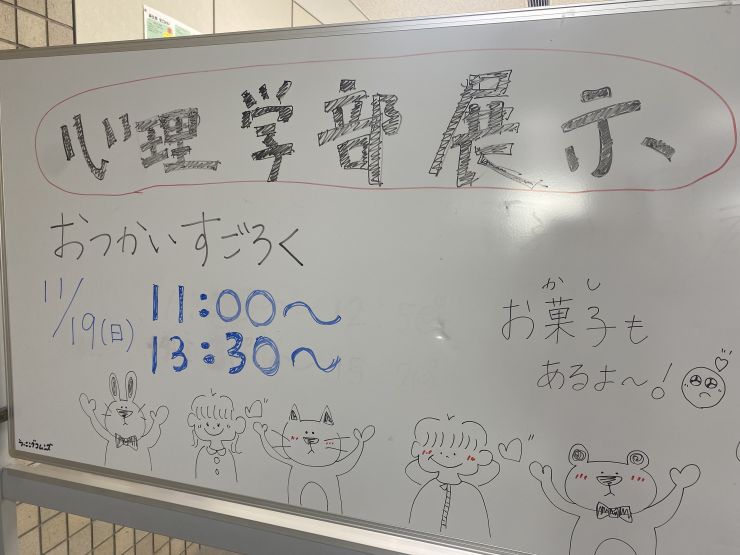 心理学部展示
おつかいすごろく
11/19(日) 11:00～
13:30～
かし
お菓子も
あるよ～!
ラーニングコモンズ